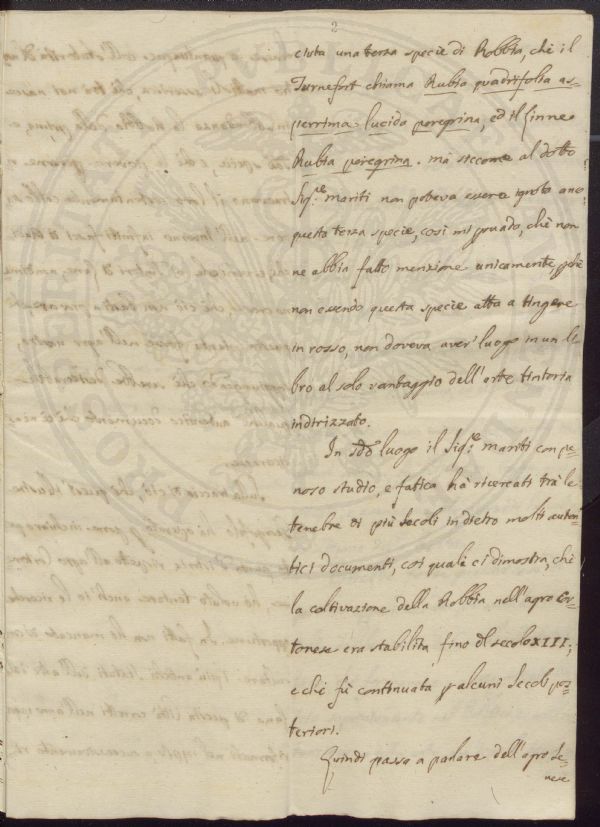 2
ciuta una terza specie di Robbia, che il
Turnefort chiama Rubia quadrifolia as=
perrima lucida peregrina, ed il Linneo
Rubia peregrina. ma siccome al dotto
Sig.re mariti non poteva essere ignota anco
questa terza specie, così mi suado, che non
ne abbia fatto menzione unicamente, pche
non essendo questa specie atta a tingere
in rosso, non doveva aver' luogo in un li=
bro al solo vantaggio dell'arte tintoria
indirizzato.
In sdo luogo il Sig.re mariti con pe=
noso studio, e fatica hà ricercati trà le
tenebre di più Secoli in dietro molti auten=
tici documenti, coi quali ci dimostra, che
la coltivazione della Robbia nell'agro Cor=
tonese era stabilita fino dl secolo XIII;
e che fù continuata p alcuni Secoli pos=
teriori.
Quindi passa a parlare dell'agro Se=
nese